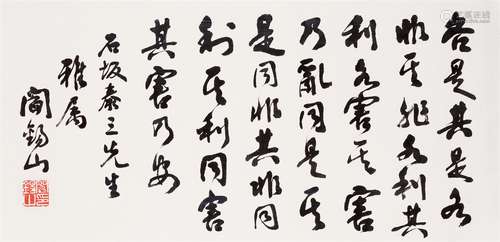 各是其是各
非其非各利其
利各害其害
乃亂同是其
是同非其非同
利其利同害
其害乃安
石坂泰三先生
雅属
閻錫山